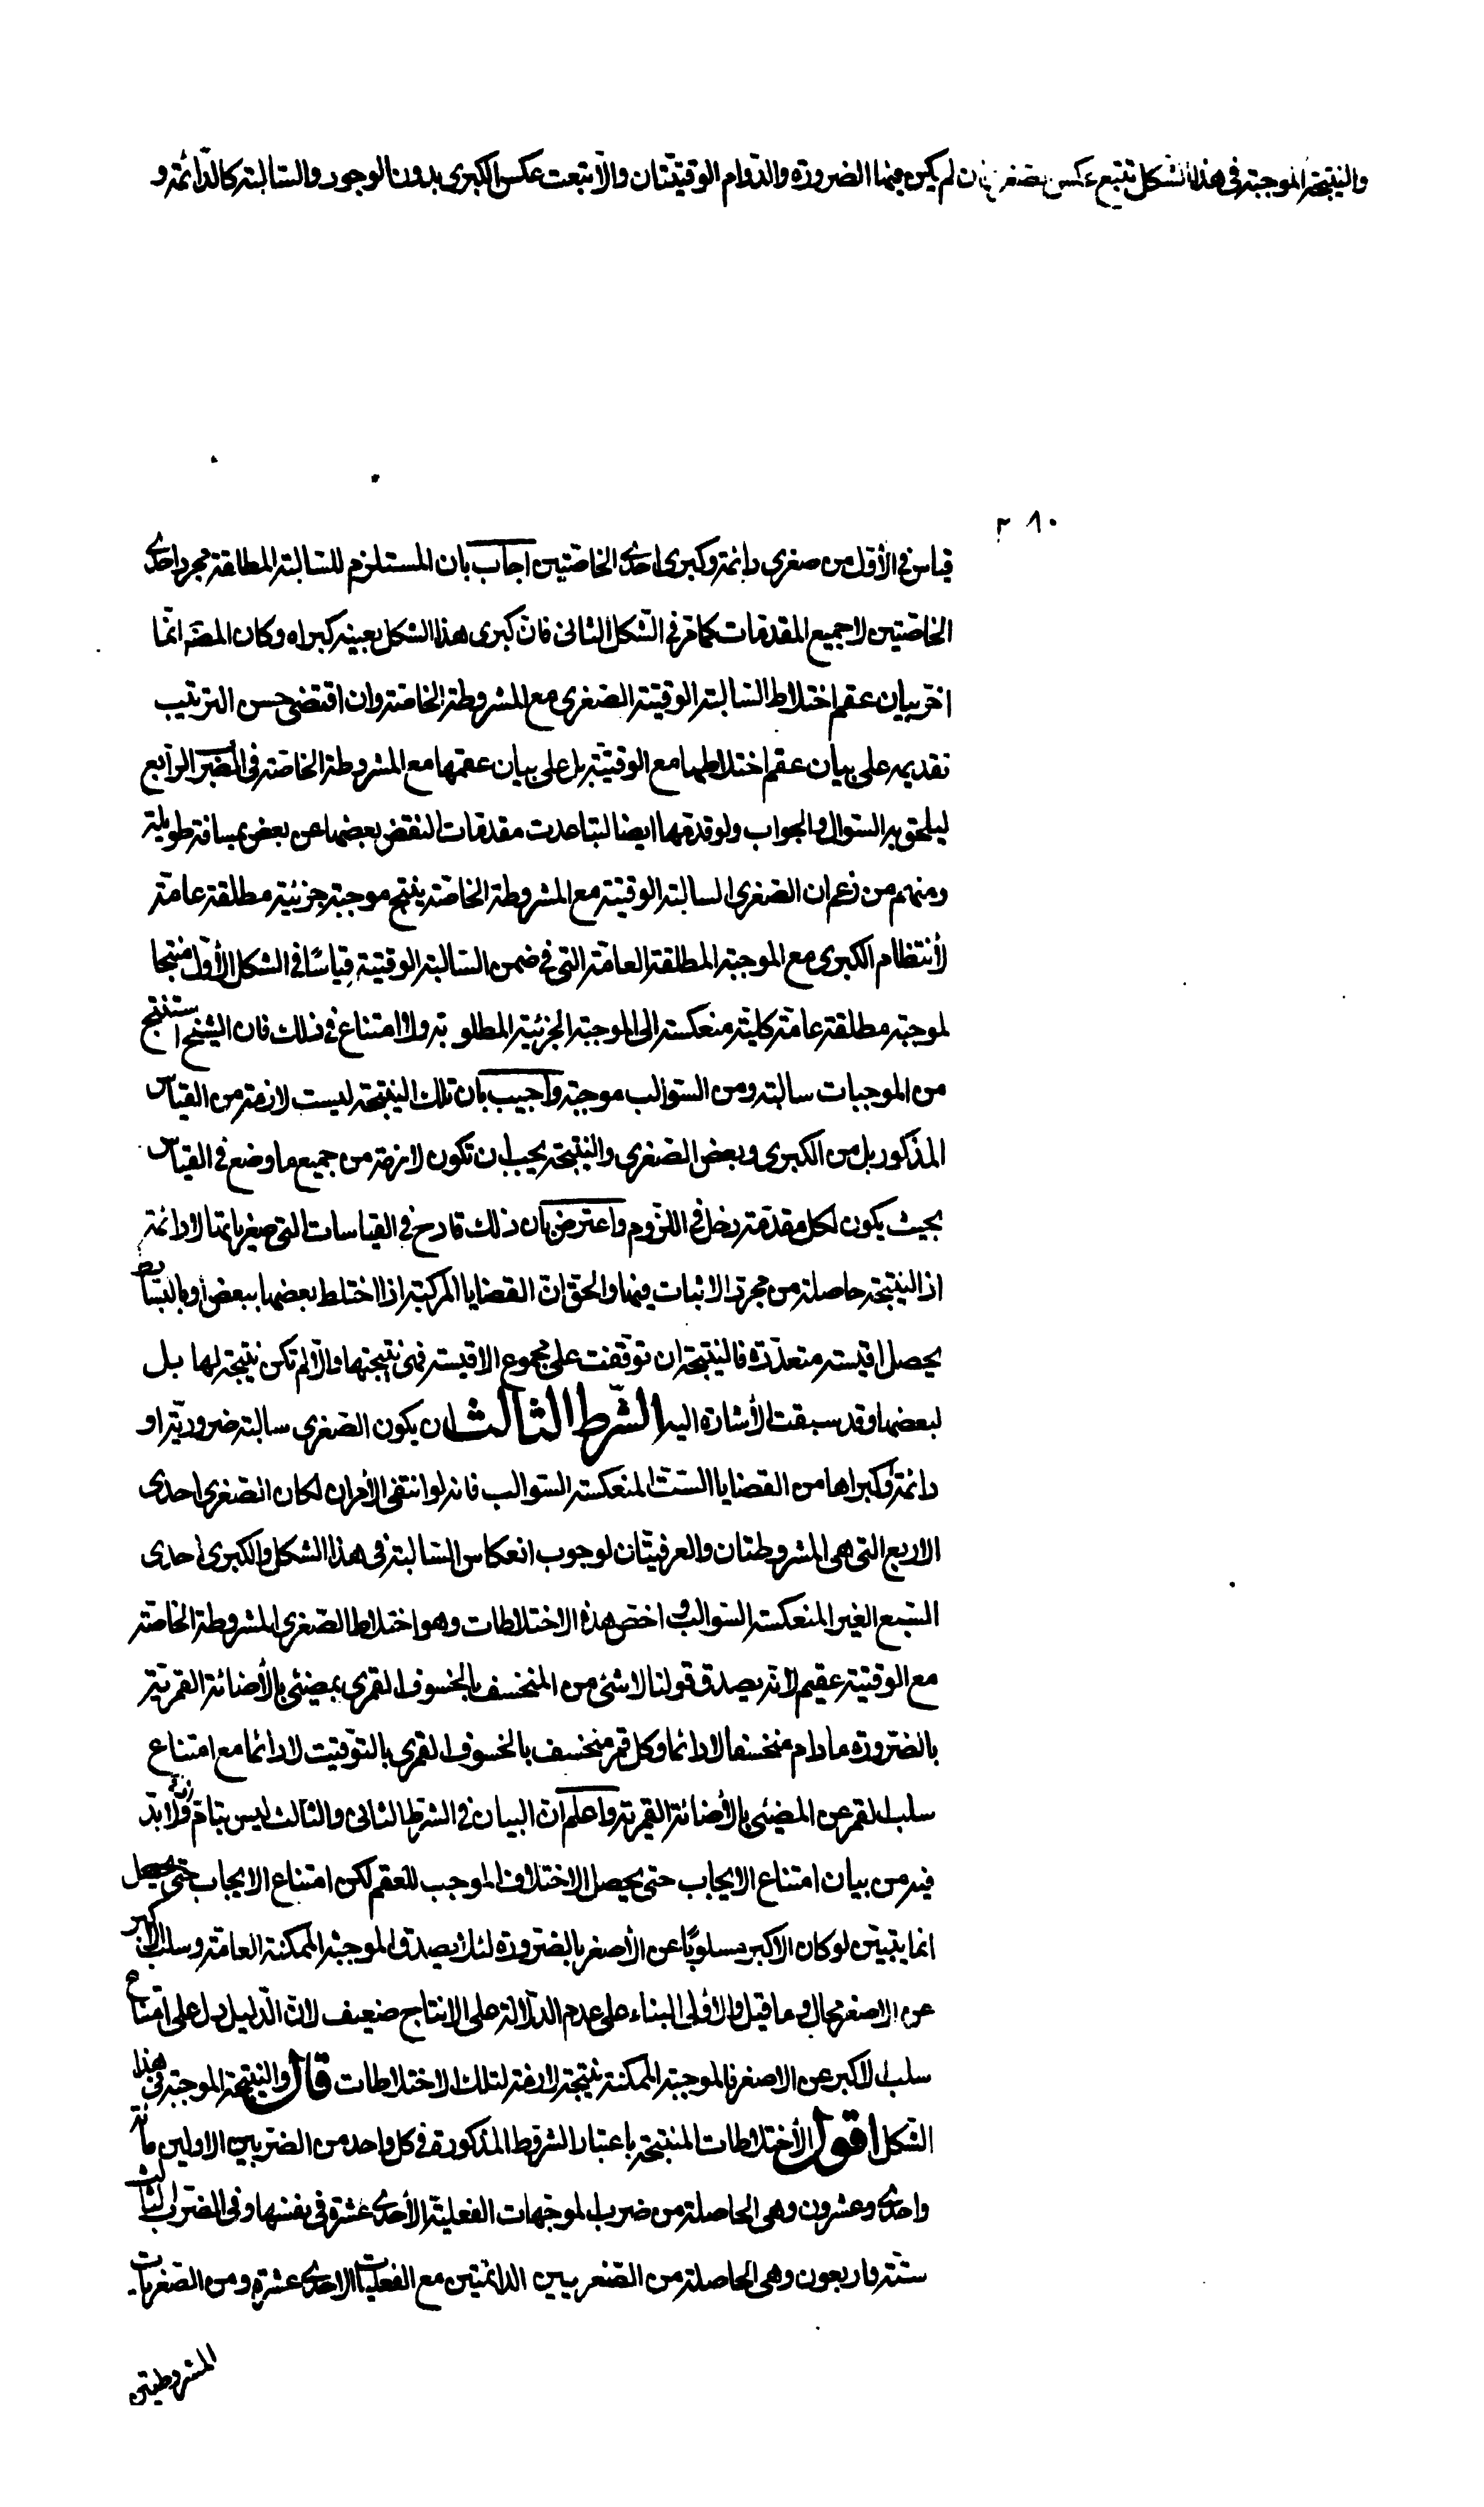 والنتيجة الموجبة في هذا الشكل تتبع عكس الصغرى ان لم يكن فيها الضرورة والدوام الوقتيتان والا تبعت عكس الكبرى بدون الوجود والسالبة كالدائمة و
٢٨٠
قياس في الأول من صغرى دائمة وكبرى احدى الخاصتين اجاب بان المستلزم للسالبة المطلقة مجرد احدى
الخاصتين لا جميع المقدمات كما مر في الشكل الثاني فان كبرى هذا الشكل بعينه كبراه وكان المصنّف انما
اخر بيان عقم اختلاط السالبة الوقتية الصغرى مع المشروطة الخاصة وان اقتضى حسن الترتيب
تقديمه على بيان عقم اختلاطها مع الوقتية بل على بيان عقمها مع المشروطة الخاصة في الضرب الرابع
ليلحق به السؤال والجواب ولو قدمها ايضا لتباعدت مقدمات النقض بعضها عن بعض بمسافة طويلة
ومنهم من زعم ان الصغرى السالبة الوقتية مع المشروطة الخاصة ينتج موجبة جزئية مطلقة عامة
لأنتظام الكبرى مع الموجبة المطلقة العامة التي في ضمن السالبة الوقتية قياسًا في الشكل الأول منتجا
لموجبة مطلقة عامة كلية منعكسة الى الموجبة الجزئية المطلوبة ولا امتناع في ذلك فان الشيخ استنتج
من الموجبات سالبة ومن السوالب موجبة واجيب بان تلك النتيجة ليست لازمة من القياس
المذكور بل من الكبرى وبعض الصغرى والنتيجة يجب ان تكون لازمة من جميع ما وضع في القياس
بحيث يكون لكل مقدمة دخل في اللزوم واعترض بان ذلك قادح في القياسات التي صغرياتها لادائمة
اذ النتيجة حاصلة من مجرد الاثبات فيها والحق ان القضايا المركبة اذا اختلط بعضها ببعض أو بالبسايط
يحصل اقيسة متعددة فالنتيجة ان توقفت على مجموع الاقيسة فهى نتيجتها والا لم تكن نتيجة لها بل
لبعضها وقد سبقت الأشارة اليه الشرط الثالث ان يكون الصغرى سالبة ضرورية او
دائمة وكبراها من القضايا الست المنعكسة السوالب فانه لو انتفى الأمران لكان الصغرى احدى
الاربع التي هى المشروطتان والعرفيتان لوجوب انعكاس السالبة في هذا الشكل والكبرى احدى
السبع الغير المنعكسة السوالب واخص هذه الاختلاطات وهو اختلاط الصغرى المشروطة الخاصة
مع الوقتية عقيم لأنه يصدق قولنا لا شئ من المنخسف بالخسوف القمرى بمضئ بالأضائة القمرية
بالضرورة ما دام منخسفا لا دائما وكل قمر منخسف بالخسوف القمرى بالتوقيت لا دائما مع امتناع
سلب القمر عن المضئ بالأضائة القمرية واعلم ان البيان في الشرط الثاني والثالث ليس بتام لأنه لا بد
فيه من بيان امتناع الايجاب حتى يحصل الاختلاف الموجب للعقم لكن امتناع الايجاب حتى يحصل
انما يتبين لو كان الاكبر مسلوبًا عن الأصغر بالضرورة لئلا يصدق الموجبة الممكنة العامة وسلب الاكبر
عن الاصغر محال وما قيل والأولى البناء على عدم الدلالة على الانتاج ضعيف لان الدليل دل على امتناع
سلب الاكبر عن الاصغر فالموجبة الممكنة نتيجة لازمة لتلك الاختلاطات قال والنتيجة الموجبة في هذا
الشكل اقول الأختلاطات المنتجة باعتبار الشروط المذكورة في كل واحد من الضربين الاولين مائة
واحدى وعشرون وهى الحاصلة من ضرب الموجهات الفعلية الأحدى عشرة في نفسها وفي الضرب الثالث
ستة واربعون وهى الحاصلة من الصغريين الدائمتين مع الفعليات الاحدى عشرة ومن الصغريات
المشروطتين